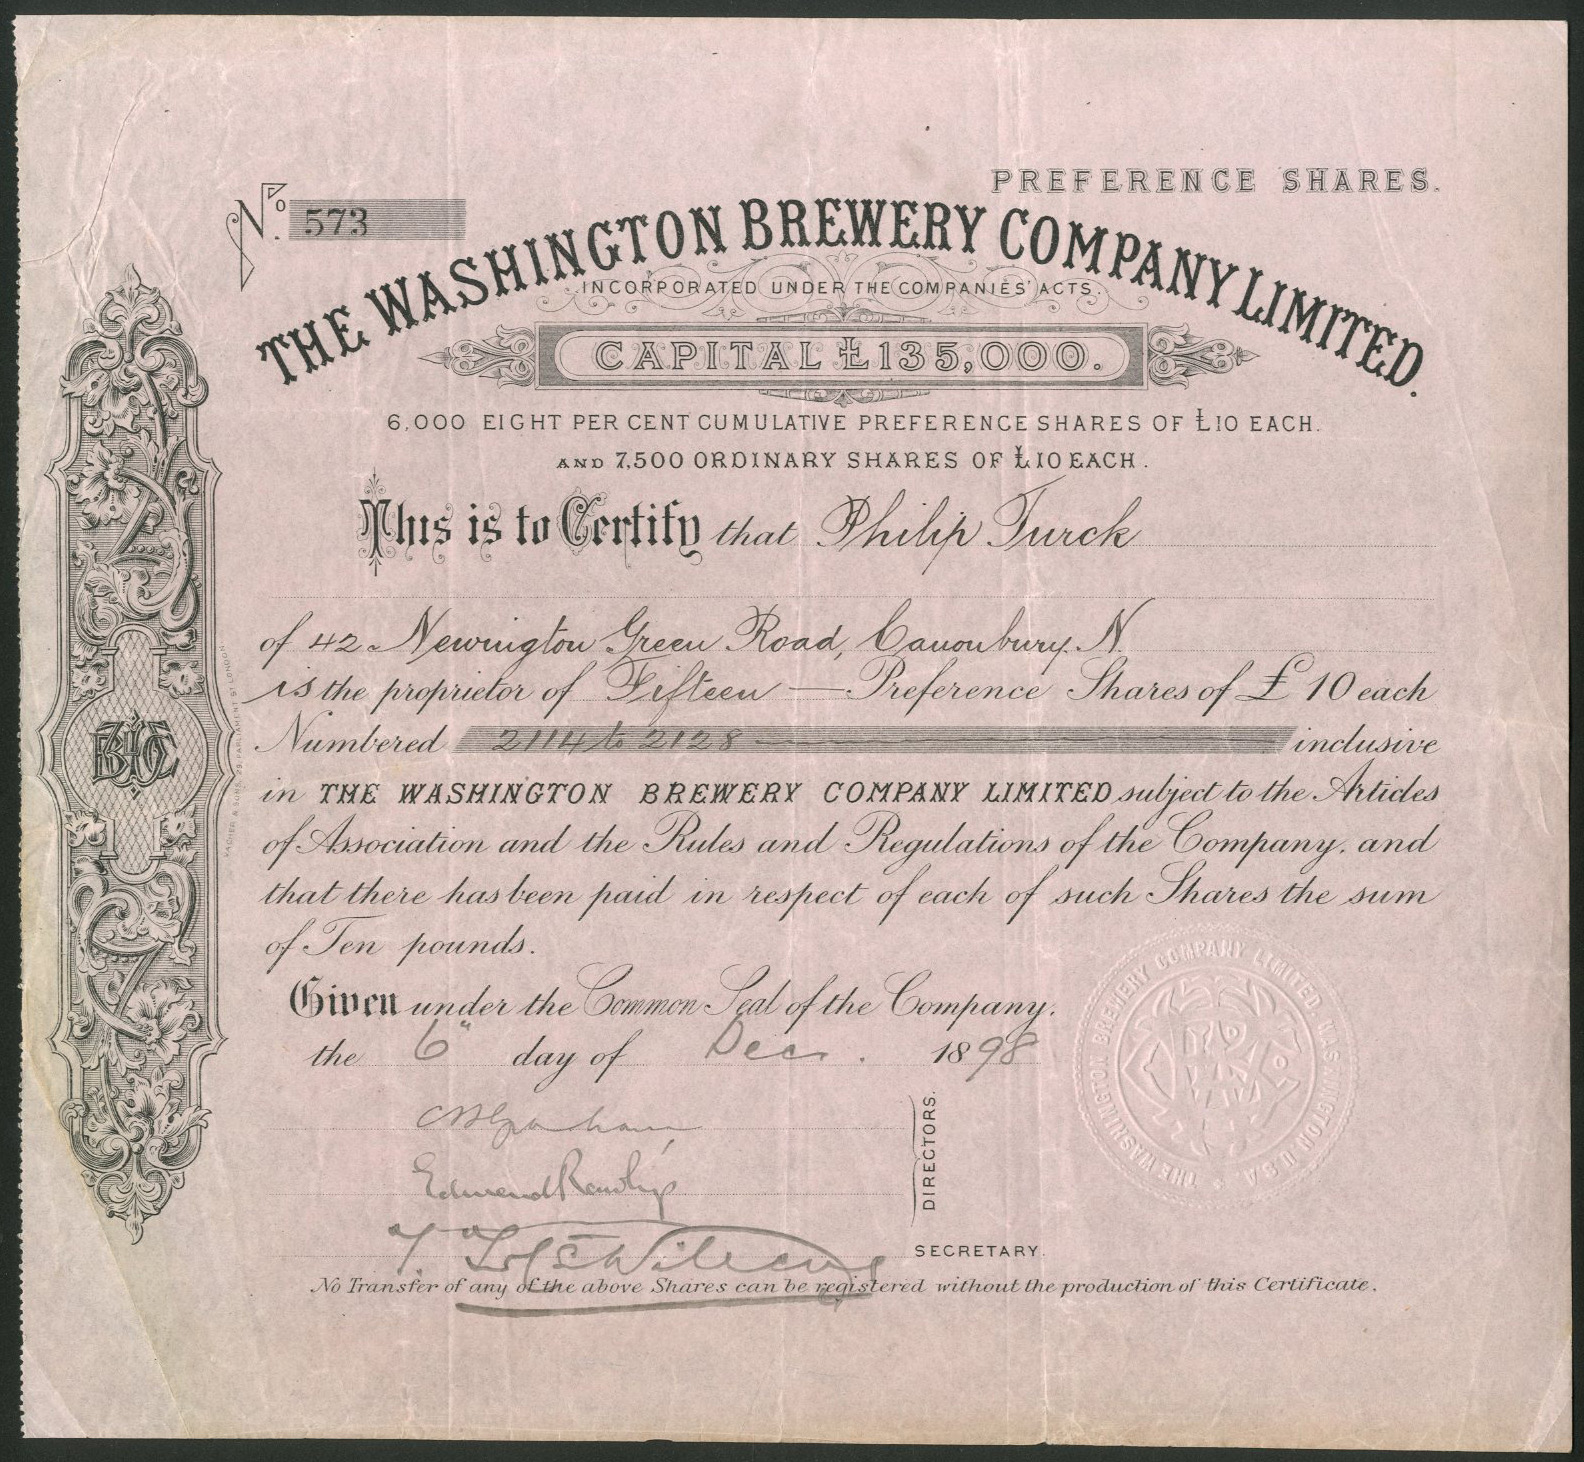 PREFERENCE SHARES.
No. 573
THE WASHINGTON BREWERY COMPANY LIMITED.
INCORPORATED UNDER THE COMPANIES' ACTS.
CAPITAL £135,000.
6,000 EIGHT PER CENT CUMULATIVE PREFERENCE SHARES OF £10 EACH.
AND 7,500 ORDINARY SHARES OF £10 EACH.
This is to Certify that Philip Turck
of 42 Newington Green Road, Canonbury. N.
is the proprietor of Fifteen — Preference Shares of £10 each
Numbered 2114 to 2128 inclusive
in THE WASHINGTON BREWERY COMPANY LIMITED subject to the Articles
of Association and the Rules and Regulations of the Company, and
that there has been paid in respect of each of such Shares the sum
of Ten pounds.
Given under the Common Seal of the Company.
the 6" day of Dec. 1898
Edmund
DIRECTORS.
SECRETARY.
No Transfer of any of the above Shares can be registered without the production of this Certificate.
& SONS, 29, PARLIAMENT ST LONDON
THE WASHINGTON BREWERY COMPANY LIMITED WASHINGTON U.S.A.